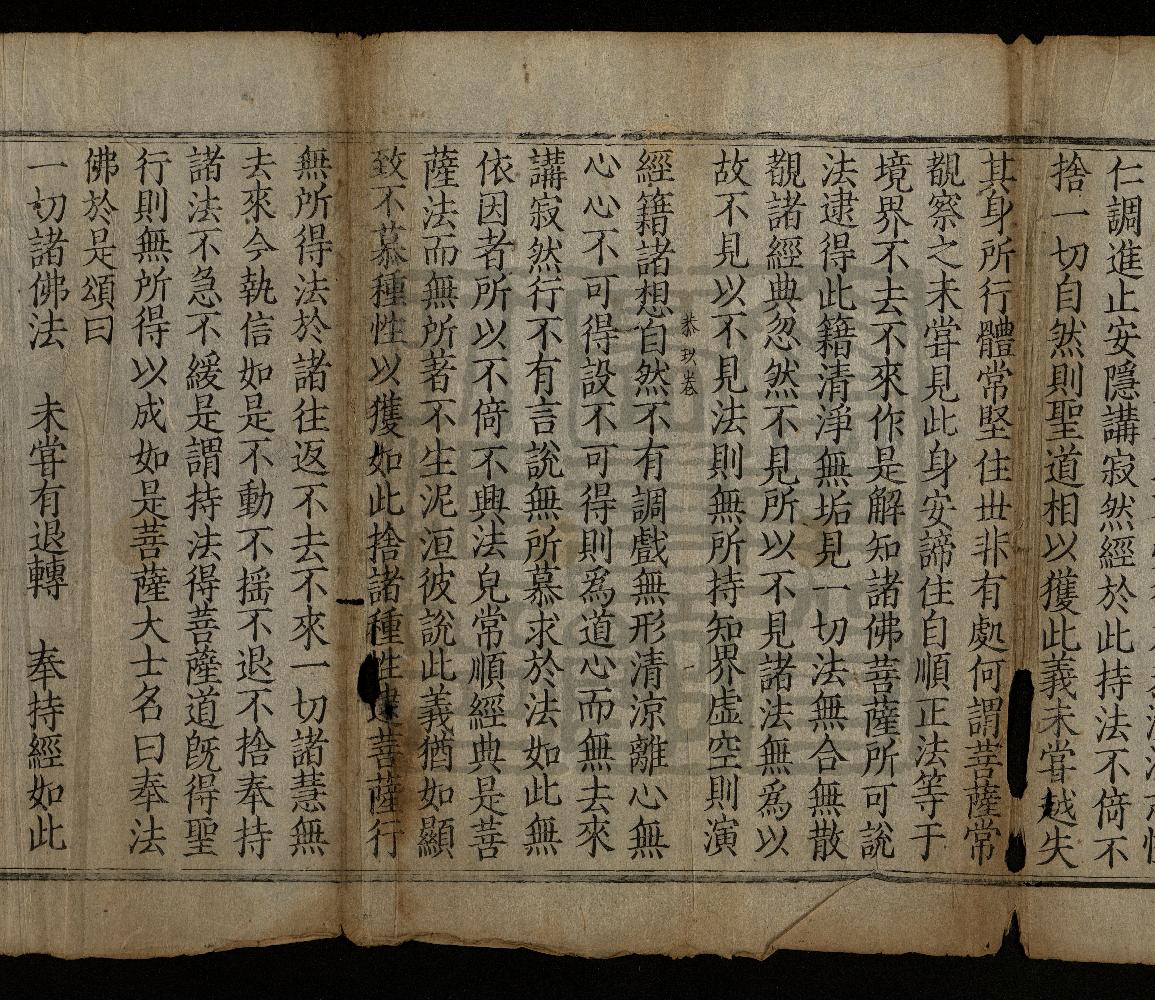 仁調進止安隱講寂然經於此持法不倚不
捨一切自然則聖道相以獲此義未甞越失
其身所行體常堅住丗非有處何謂菩薩常
觀察之未甞見此身安諦住自順正法等于
境界不去不來作是解知諸佛菩薩所可說
法逮得此籍清淨無垢見一切法無合無散
觀諸經典忽然不見所以不見諸法無爲以
故不見以不見法則無所持知界虚空則演
恭 玖卷
經籍諸想自然不有調戲無形清涼離心無
心心不可得設不可得則爲道心而無去來
講寂然行不有言說無所慕求於法如此無
依因者所以不倚不興法皃常順經典是菩
薩法而無所著不生泥洹彼說此義猶如顯
致不慕種性以獲如此捨諸種性逮菩薩行
無所得法於諸往返不去不來一切諸慧無
去來今執信如是不動不摇不退不捨奉持
諸法不急不緩是謂持法得菩薩道旣得聖
行則無所得以成如是菩薩大士名曰奉法
佛於是頌曰
一切諸佛法　未甞有退轉　奉持經如此